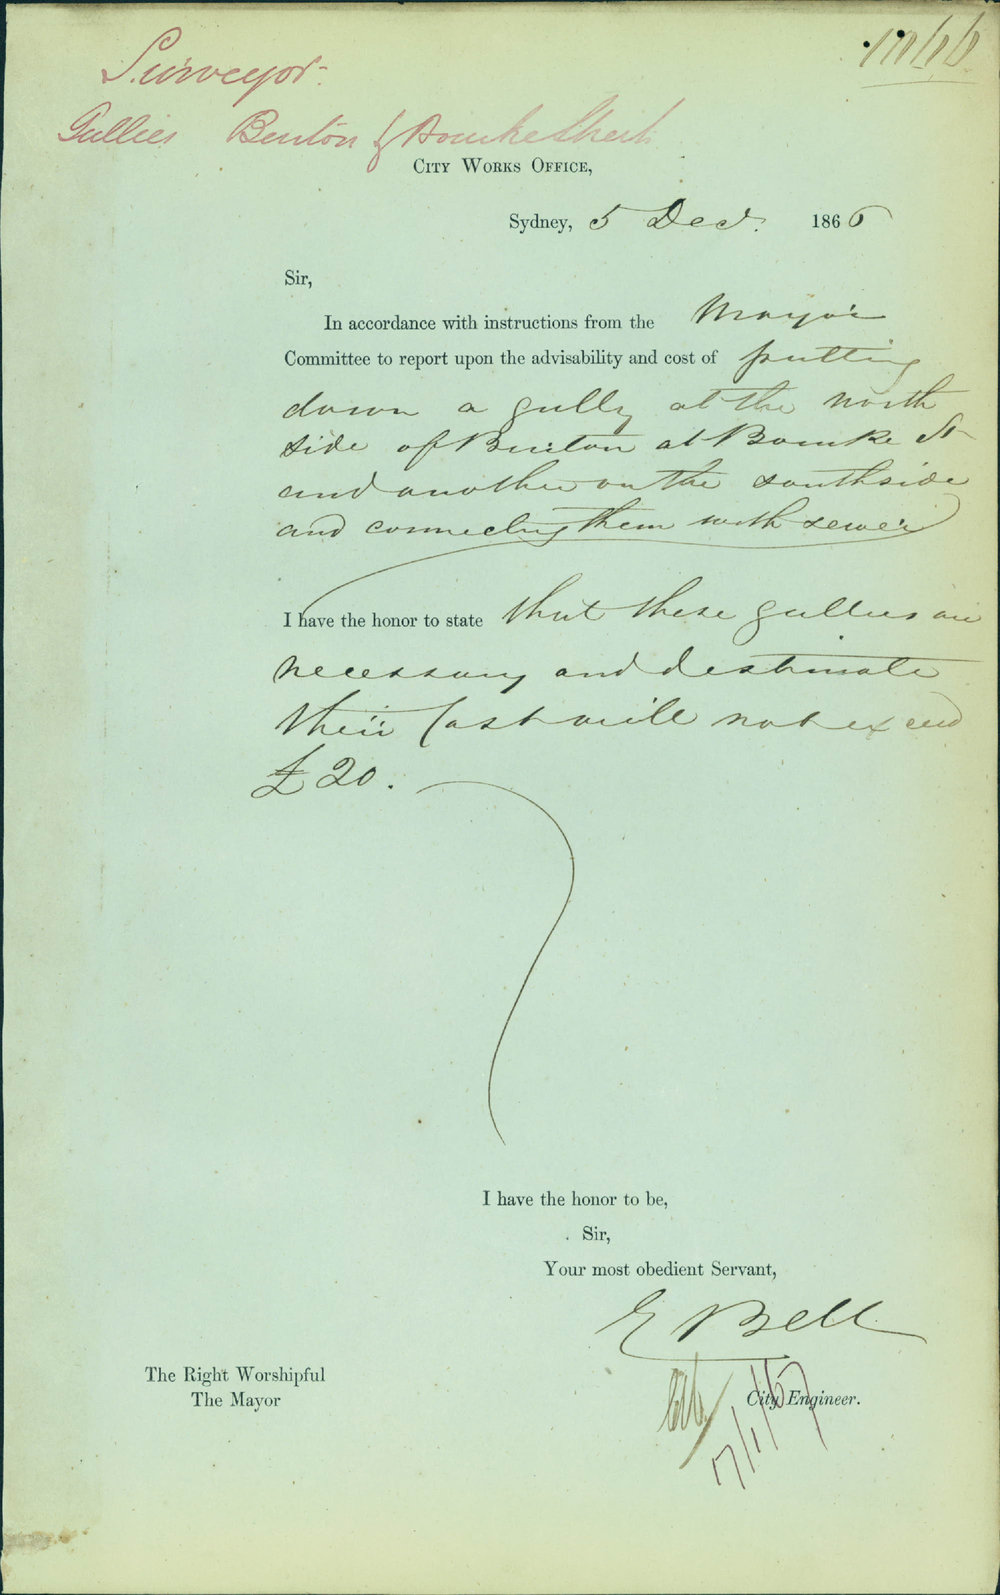 1066
Surveyor
Gullies Burton & Bourke Streets
CITY WORKS OFFICE,
Sydney, 5 Decr. 1866
Sir,
In accordance with instructions from the Mayor
Committee to report upon the advisability and cost of putting
down a gully at the north
side of Burton at Bourke St
and another on the southside
and connecting them with sewer
I have the honor to state that these gullies are
necessary and I estimate
their Cost will not exceed
£20.
I have the honor to be,
Sir,
Your most obedient Servant,
E Bell
The Right Worshipful
The Mayor
City Engineer.
17/1/67